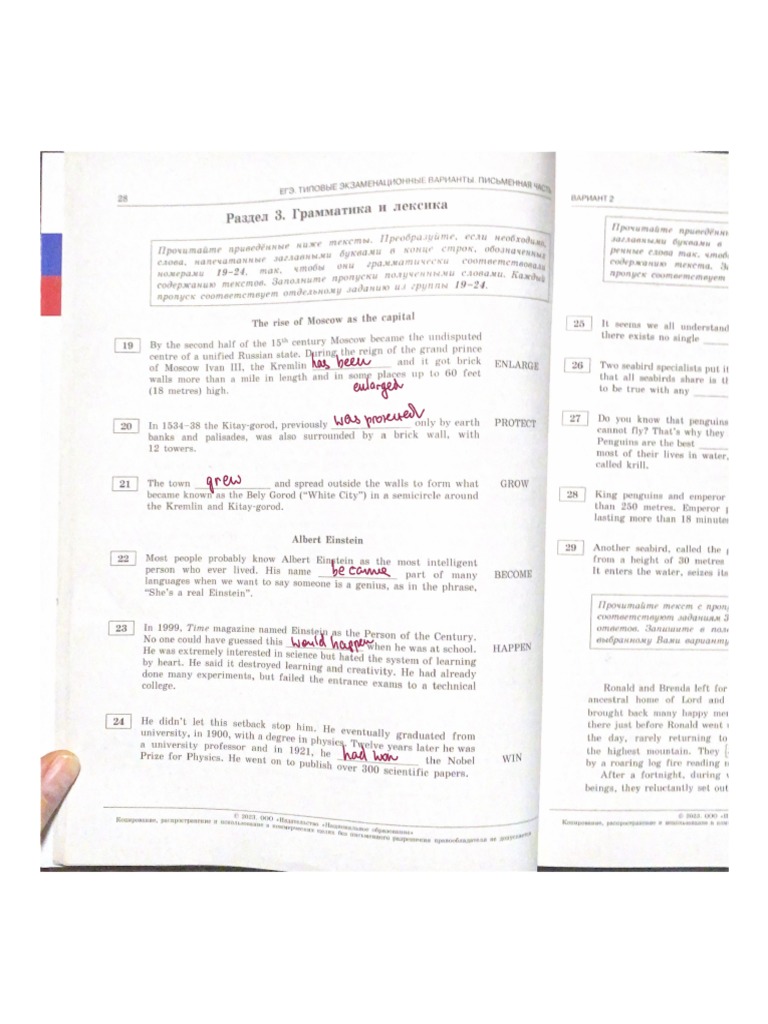 28
ЕГЭ. ТИПОВЫЕ ЭКЗАМЕНАЦИОННЫЕ ВАРИАНТЫ. ПИСЬМЕННАЯ ЧАСТЬ
Раздел 3. Грамматика и лексика
Прочитайте приведённые ниже тексты. Преобразуйте, если необходимо,
слова, напечатанные заглавными буквами в конце строк, обозначенных
номерами 19–24, так, чтобы они грамматически соответствовали
содержанию текстов. Заполните пропуски полученными словами. Каждый
пропуск соответствует отдельному заданию из группы 19–24.
The rise of Moscow as the capital
19 By the second half of the 15th century Moscow became the undisputed
centre of a unified Russian state. During the reign of the grand prince
of Moscow Ivan III, the Kremlin has been and it got brick ENLARGE
walls more than a mile in length and in some places up to 60 feet
enlarged
(18 metres) high.
20 In 1534–38 the Kitay-gorod, previously was protected only by earth PROTECT
banks and palisades, was also surrounded by a brick wall, with
12 towers.
21 The town grew and spread outside the walls to form what GROW
became known as the Bely Gorod ("White City") in a semicircle around
the Kremlin and Kitay-gorod.
Albert Einstein
22 Most people probably know Albert Einstein as the most intelligent
person who ever lived. His name became part of many BECOME
languages when we want to say someone is a genius, as in the phrase,
"She's a real Einstein".
23 In 1999, Time magazine named Einstein as the Person of the Century.
No one could have guessed this would happen when he was at school. HAPPEN
He was extremely interested in science but hated the system of learning
by heart. He said it destroyed learning and creativity. He had already
done many experiments, but failed the entrance exams to a technical
college.
24 He didn't let this setback stop him. He eventually graduated from
university, in 1900, with a degree in physics. Twelve years later he was
a university professor and in 1921, he had won the Nobel WIN
Prize for Physics. He went on to publish over 300 scientific papers.
© 2023. ООО «Издательство «Национальное образование»
Копирование, распространение и использование в коммерческих целях без письменного разрешения правообладателя не допускается
ВАРИАНТ 2
Прочитайте приведённы
заглавными буквами в
речные слова так, чтоб
содержанию текста. За
пропуск соответствует
25 It seems we all understand
there exists no single
26 Two seabird specialists put it
that all seabirds share is th
to be true with any
27 Do you know that penguins
cannot fly? That's why they
Penguins are the best
most of their lives in water,
called krill.
28 King penguins and emperor
than 250 metres. Emperor p
lasting more than 18 minutes
29 Another seabird, called the
from a height of 30 metres
It enters the water, seizes its
Прочитайте текст с проп
соответствуют заданиям 3
ответов. Запишите в пол
выбранному Вами варианту
Ronald and Brenda left for
ancestral home of Lord and
brought back many happy mem
there just before Ronald went
the day, rarely returning to
the highest mountain. They
by a roaring log fire reading
After a fortnight, during
beings, they reluctantly set out
© 2023. ООО «И
Копирование, распространение и использование в ком